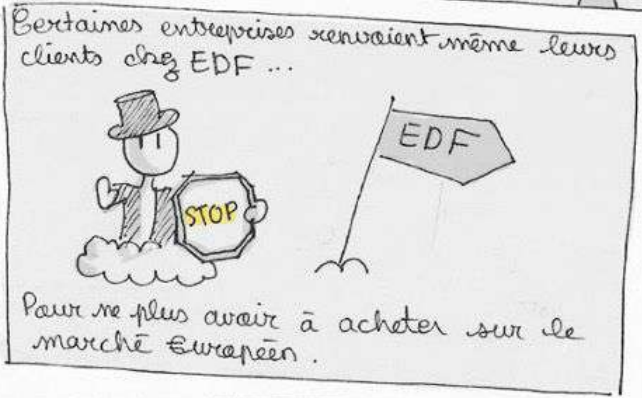 Certaines entreprises renvoient même leurs
clients chez EDF ...
STOP
EDF
Pour ne plus avoir à acheter sur le
marché €uropéen.